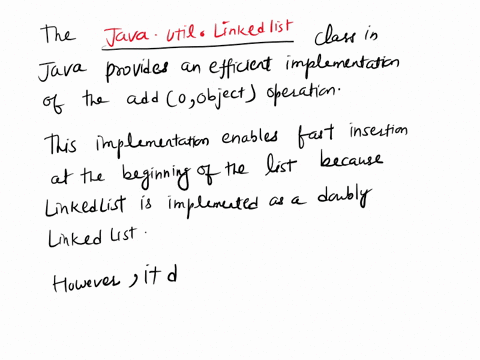 The Java.util.Linkedlist class in
Java provides an efficient implementation
of the add(0,object) operation.
This implementation enables fast insertion
at the beginning of the list because
LinkedList is implemented as a doubly
Linked List.
However, it d